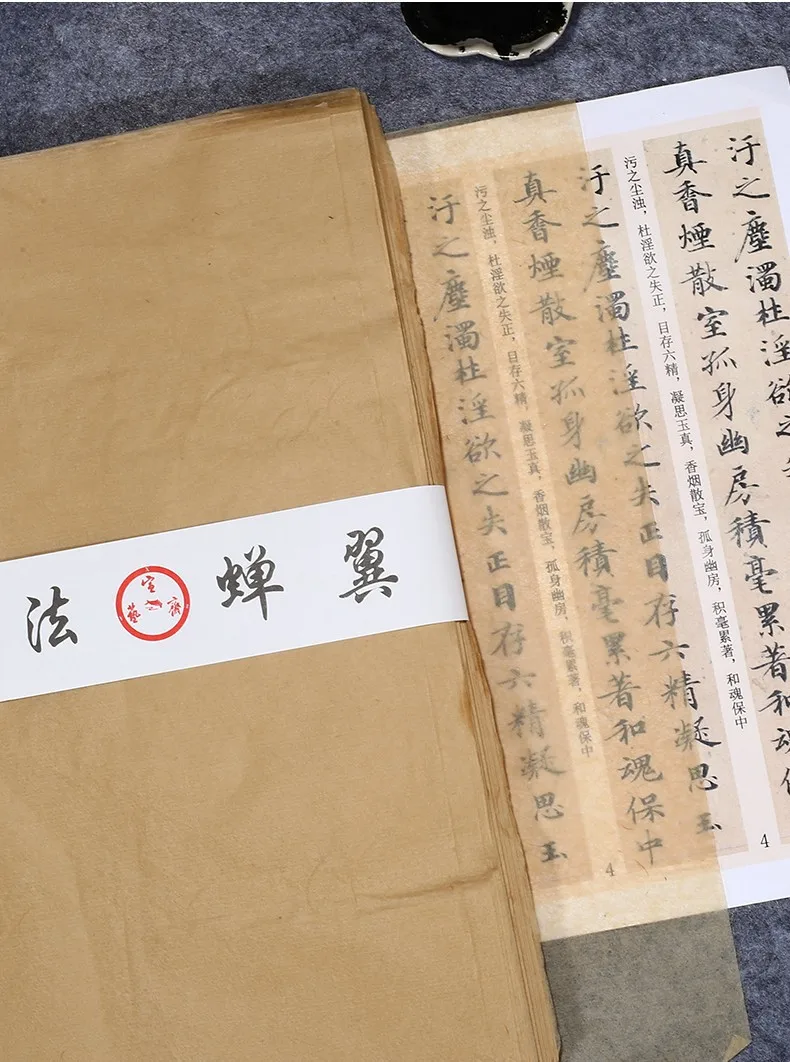 法 蝉翼
宣藝齋
汙之塵濁杜淫欲
真香煙散室孤身幽房積毫累著和魂
污之尘浊，杜淫欲之失正，目存六精，凝思玉真，香烟散宝，孤身幽房，积毫累著，和魂保中
4
汙之塵濁杜淫欲之失正目存六精凝思玉
真香煙散室孤身幽房積毫累著和魂保中
污之尘浊，杜淫欲之失正，目存六精，凝思玉真，香烟散宝，孤身幽房，积毫累著，和魂保中
汙之塵濁杜淫欲之失正目存六精凝思玉
4